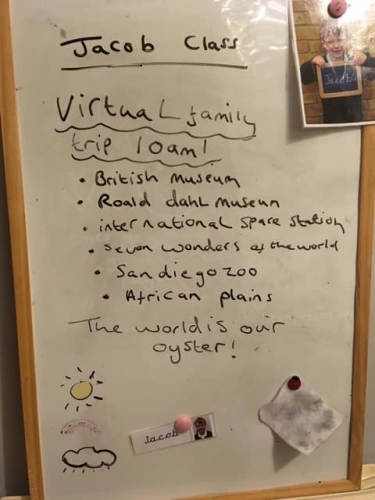 Jacob Class
Jacob
Virtual family
trip 10am!
• British Museum
• Roald dahl museun
• international spare station
• seven wonders of the world
• San diego zoo
• African plains
The world is our
oyster!
Jacob